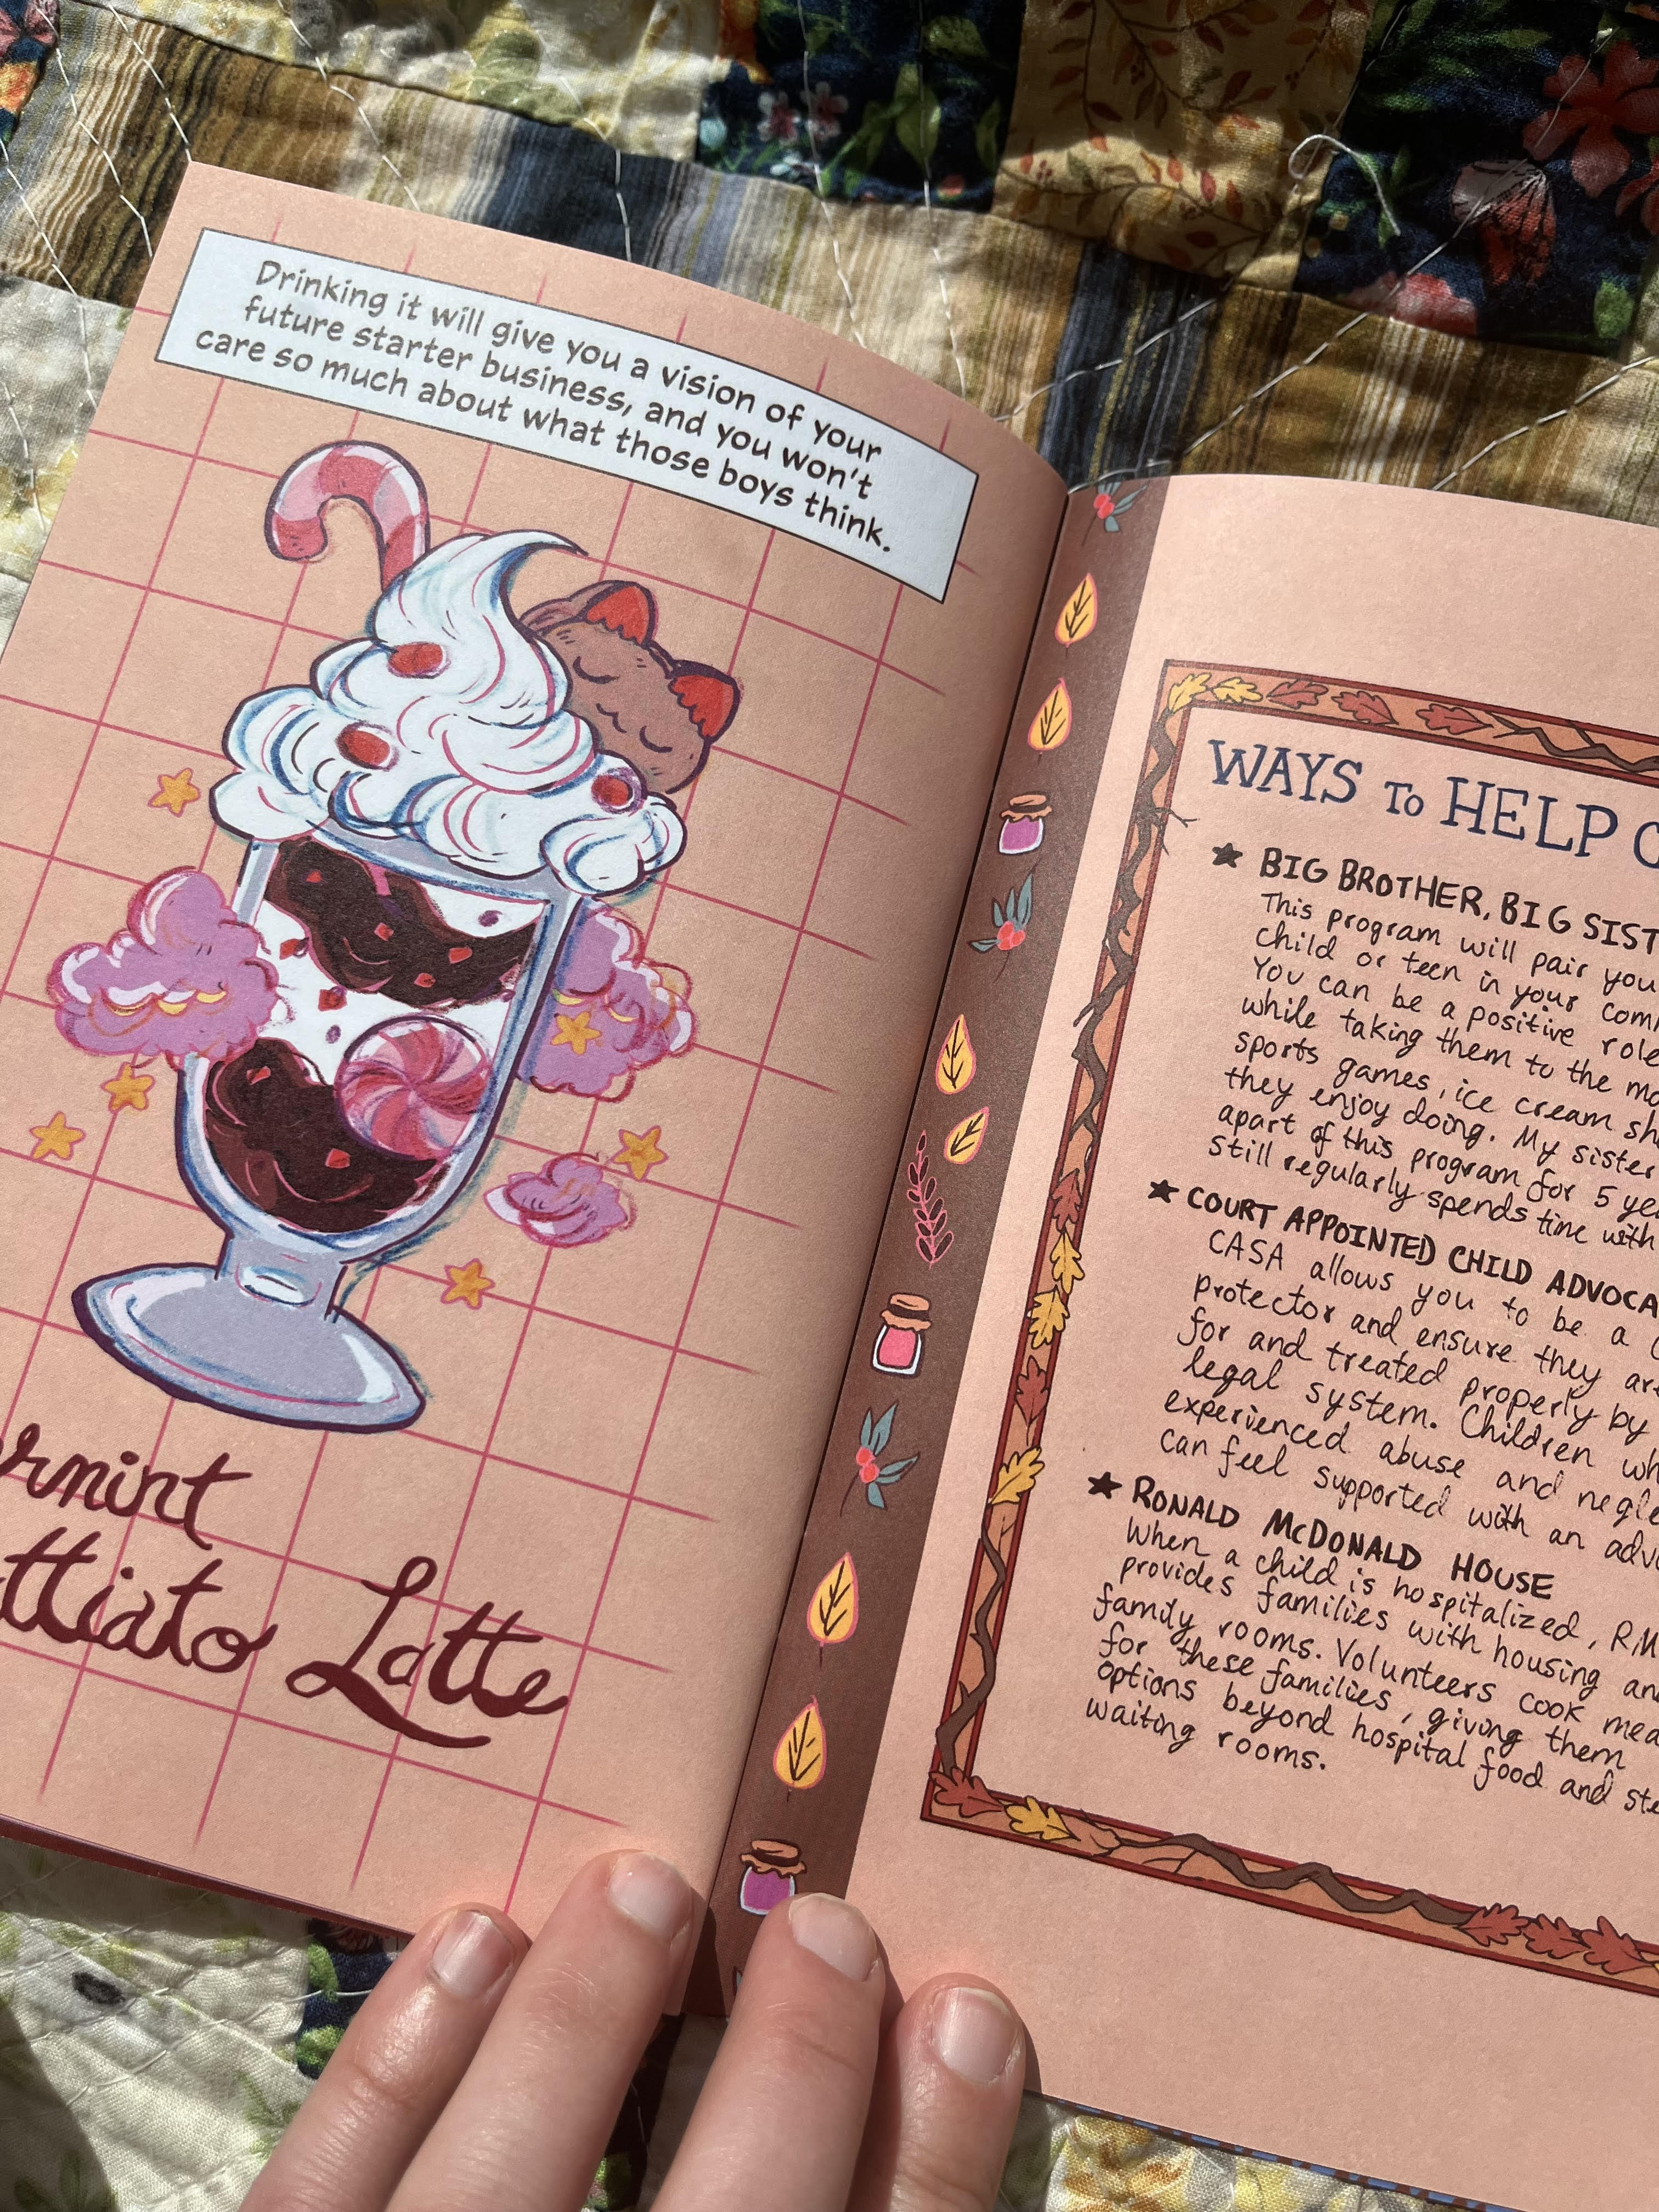 Drinking it will give you a vision of your
future starter business, and you won't
care so much about what those boys think.
Latte
WAYS To HELP
★ BIG BROTHER, BIG
This program will pair you
child or teen in your
You can be a positive role
while taking them to the
sports games, ice cream
they enjoy doing. My sister
apart of this program for 5
still regularly spends time with
★ COURT APPOINTED CHILD
CASA allows you to be a
protector and ensure they
for and treated properly by
legal system. Children
experienced abuse and
can feel supported with an
★ RONALD McDONALD HOUSE
When a child is hospitalized,
provides families with housing
family rooms. Volunteers cook
for these families, giving them
options beyond hospital food and
waiting rooms.